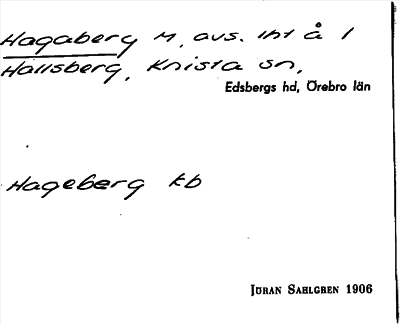 Hagaberg M, avs. int å l
Hallsberg, Knista sn,
Edsbergs hd, Örebro län
Hageberg kb
JÖRAN SAHLGREN 1906